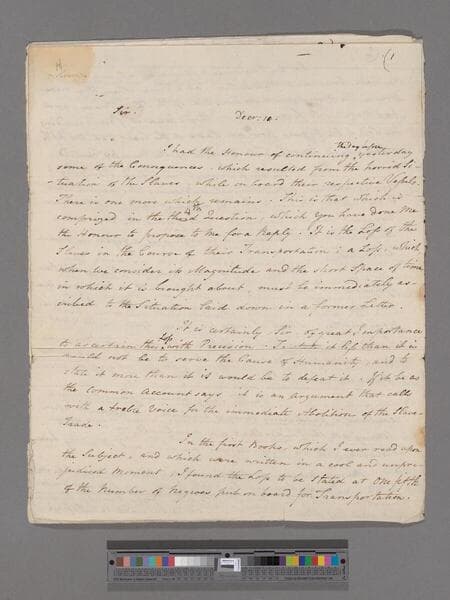 (1
Sir.
Decr: 10.
the day before
I had the Honour of continuing yesterday
some of the Consequences, which resulted from the horrid Si-
-tuation of the Slaves while on board their respective Vessels.
There is one more which remains. This is that which is
4th
comprized in the third Question, which you have done me
the Honour to propose to me for a Reply. It is the Loss of the
Slaves in the Course of their Transportation: a Loss, which
when we consider its Magnitude and the short Space of time
in which it is brought about, must be immediately as-
cribed to the Situation laid down in a former Letter.
It is certainly Sir, of great Importance
Loss
to ascertain this with Precision. To state it less than it is
would not be to serve the Cause of Humanity, and to
state it more than it is would be to defeat it. If it be as
the common Account says it is an argument that calls
with a treble Voice for the immediate Abolition of the Slave-
Trade.
In the first Books, which I ever read upon
the Subject, and which were written in a cool and unpre-
judiced Moment, I found the Loss to be stated at one fifth
of the Number of Negroes put on board for Transportation.